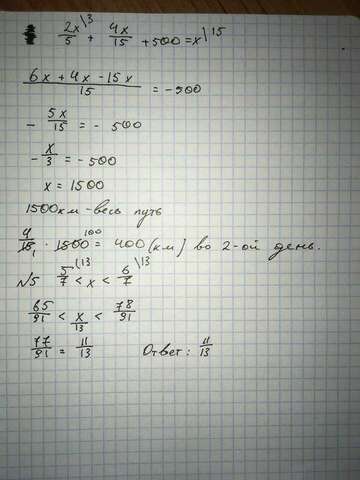 2x\3/5 + 4x/15 + 500 = x\15
6x + 4x - 15x/15 = -500
- 5x/15 = - 500
- x/3 = -500
x = 1500
1500км - весь путь
4/15₁ · 1500¹⁰⁰ = 400 (км) во 2-ой день.
№5 5/7\13 < x < 6/7\13
65/91 < x/13 < 78/91
77/91 = 11/13 Ответ: 11/13